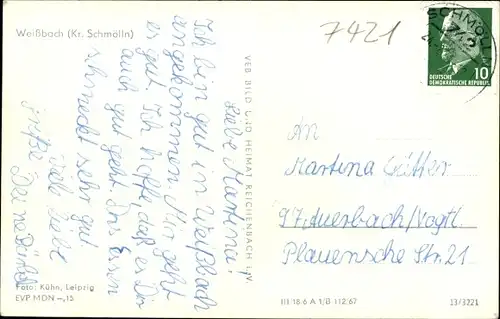 Weißbach (Kr. Schmölln)
7421
SCHMÖLLN
DEUTSCHE
DEMOKRATISCHE REPUBLIK
10
Liebe Martina!
Ich bin gut in Weißbach
angekommen. Mir geht
es gut. Ich hoffe, daß es Dir
auch gut geht. Das Essen
schmeckt sehr gut
Viele liebe
Grüße
Deine
VEB BILD UND HEIMAT REICHENBACH I. V.
An
Martina Götter
97 Auerbach/Vogtl.
Plauensche Str. 21
Foto: Kühn, Leipzig
EVP MDN -,15
III 18-6 A 1/B 112/67
13/3221